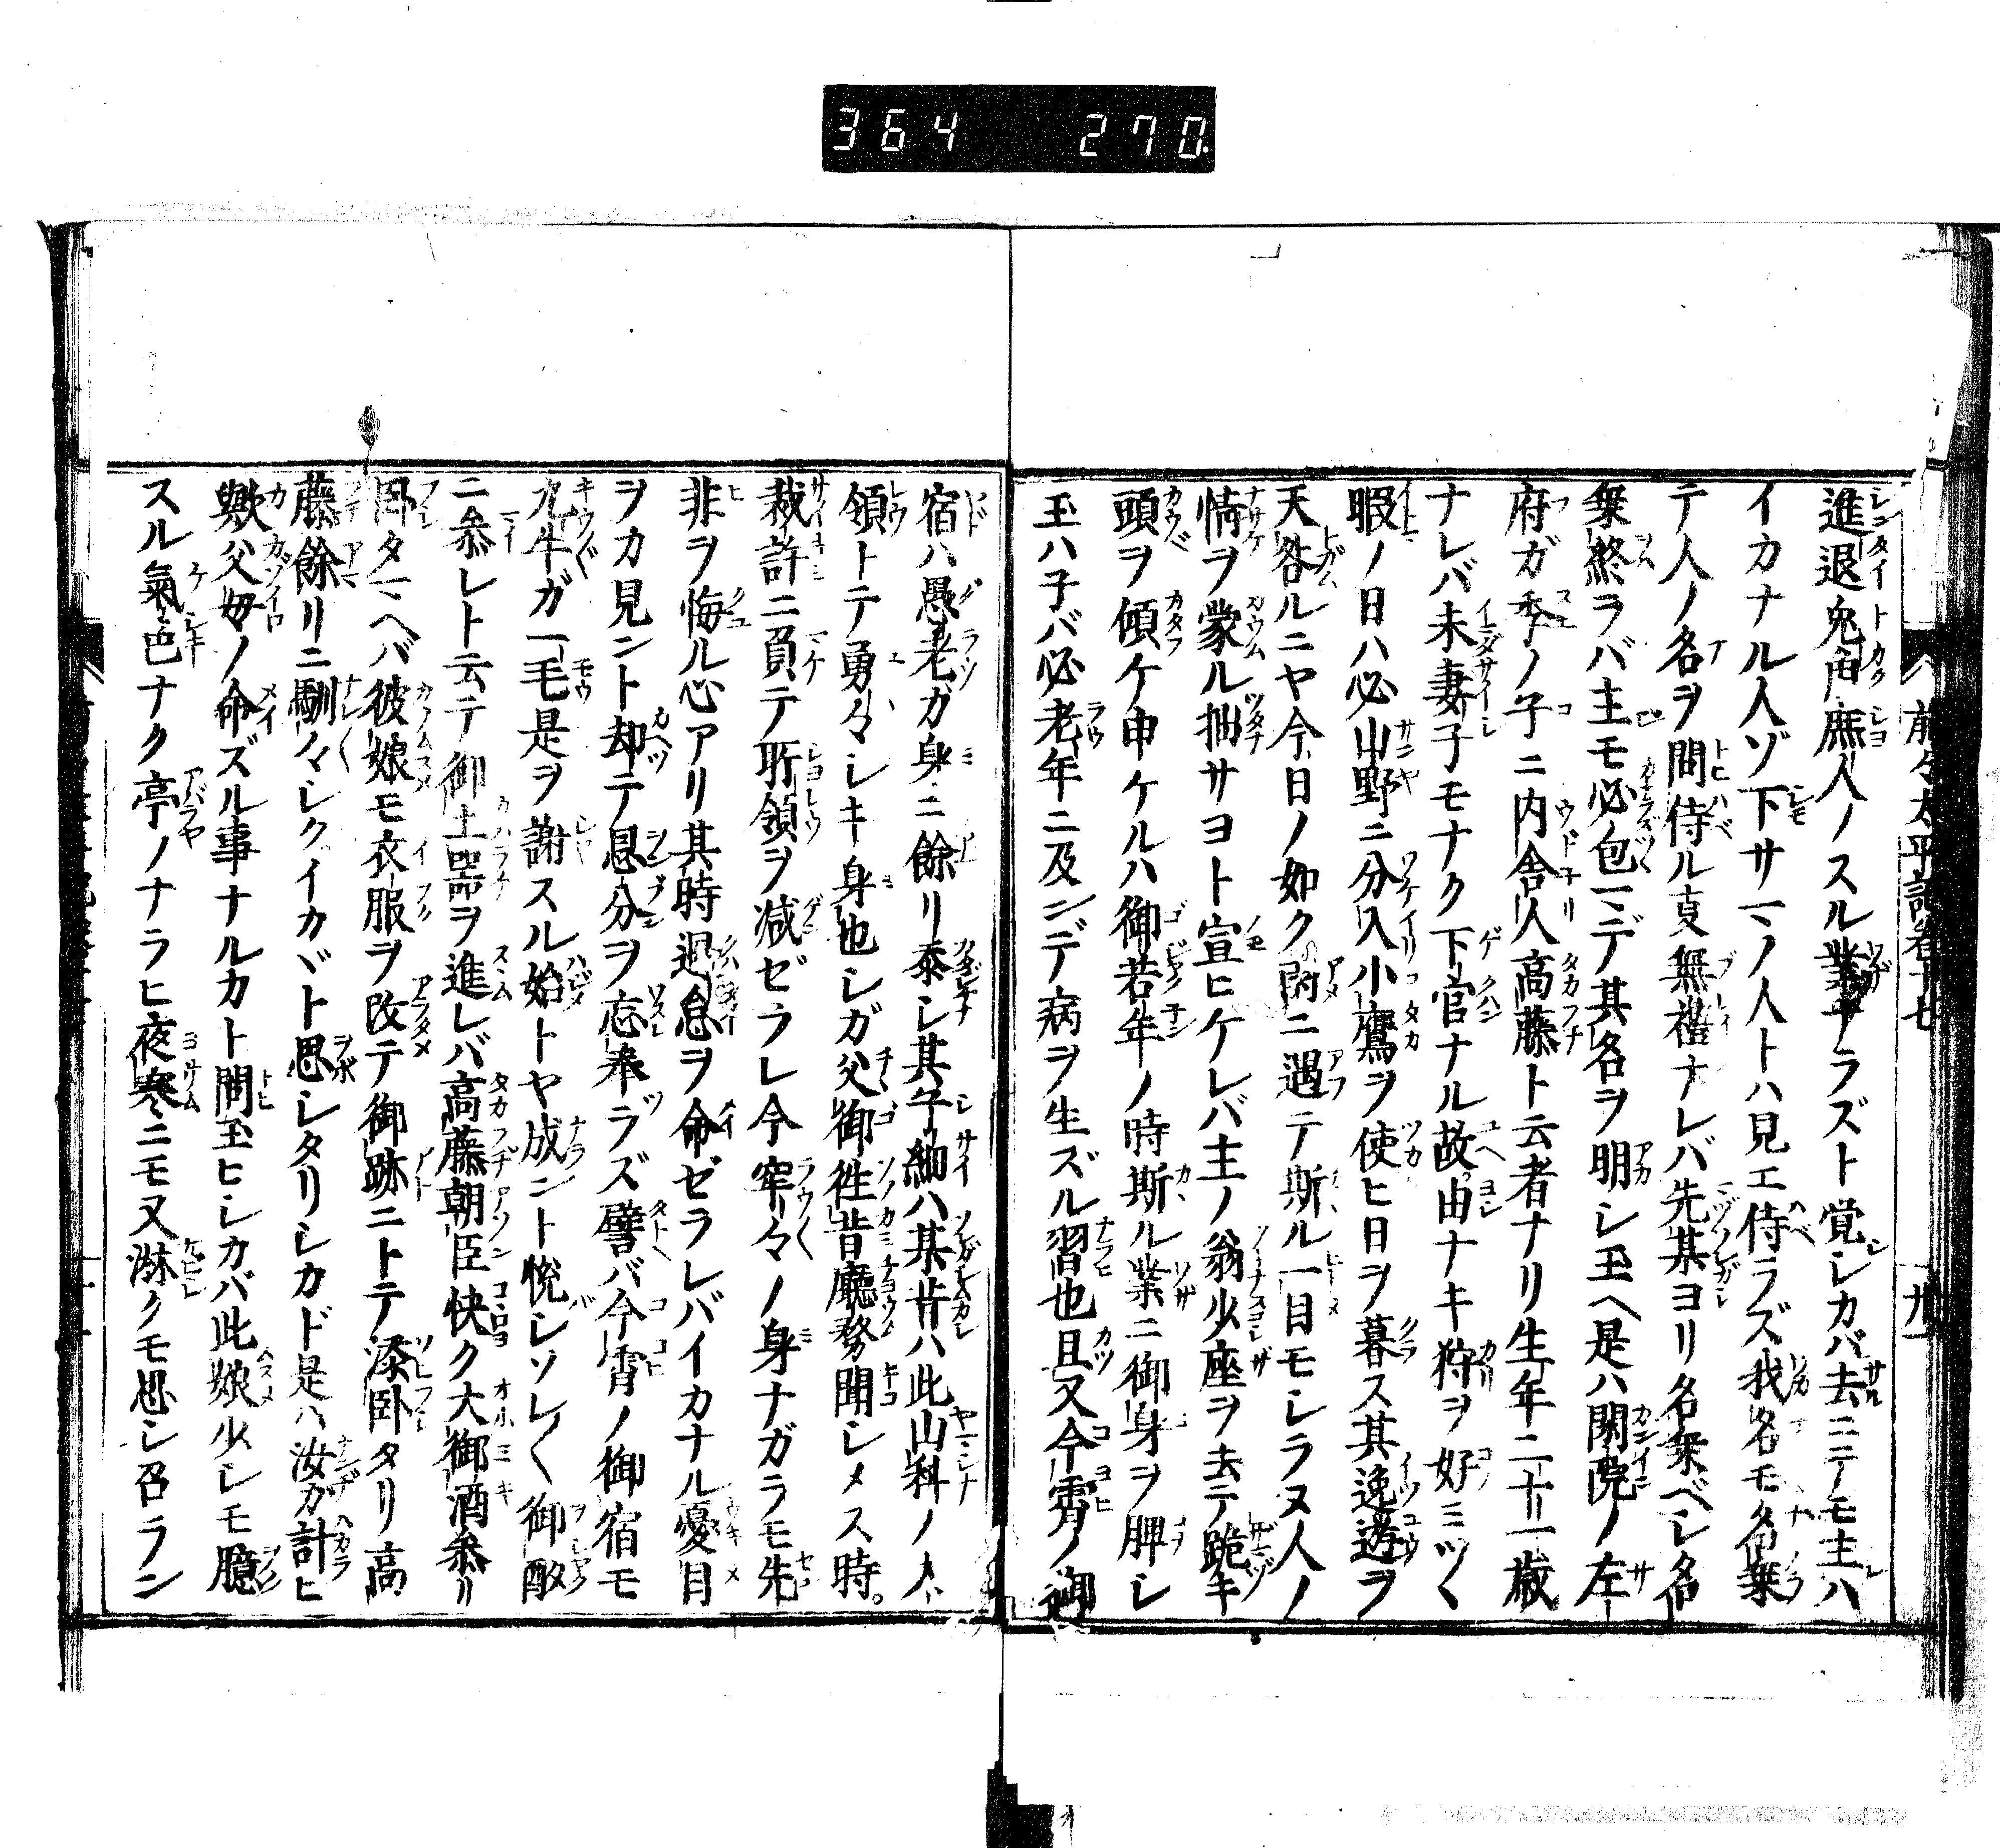 364 270
前々太平記卷十七
進退兔角庶人ノスル業ナラズト覚シカバ去ニテモ主ハ
イカナル人ゾ下サマノ人トハ見エ侍ラズ我名モ名乗
テ人ノ名ヲ問侍ル叓無禮ナレバ先某ヨリ名乗ベシ名
乗終ラバ主モ必包マデ其名ヲ明シ玉ヘ是ハ閑院ノ左
府ガ季ノ子ニ内舎人高藤ト云者ナリ生年二十一歳
ナレバ未妻子モナク下官ナル故由ナキ狩ヲ好ミツヽ
暇ノ日ハ必山野ニ分入小鷹ヲ使ヒ日ヲ暮ス其逸遊ヲ
天咎ルニヤ今日ノ如ク雨ニ遇テ斯ル一目モシラヌ人ノ
情ヲ蒙ル拙サヨト宣ヒケレバ主ノ翁少座ヲ去テ跪キ
頭ヲ傾ケ申ケルハ御若年ノ時斯ル業ニ御身ヲ脾シ
玉ハ子バ必老年ニ及ンデ病ヲ生ズル習也且又今霄ノ御
宿ハ愚老ガ身ニ餘リ忝シ其子細ハ某昔ハ此山科ノ
領トテ勇々シキ身也シガ父御徃昔廳務聞シメス時。
裁許ニ負テ所領ヲ減ゼラレ今窂々ノ身ナガラモ先
非ヲ悔ル心アリ其時過怠ヲ命ゼラレバイカナル憂目
ヲカ見ント却テ恩分ヲ忘奉ラズ譬バ今霄ノ御宿モ
九牛ガ一毛是ヲ謝スル始トヤ成ント悦シソレ〱御酌
ニ参レト云テ御土器ヲ進レバ高藤朝臣快ク大御酒参リ
臥タマヘバ彼娘モ衣服ヲ改テ御跡ニトテ添卧タリ高
藤餘リニ馴々シクイカヾト思シタリシカド是ハ汝ガ計ヒ
歟父母ノ命ズル事ナルカト問玉ヒシカバ此娘少シモ臆
スル氣色ナク亭ノナラヒ夜寒ニモ又淋クモ思シ召ラン